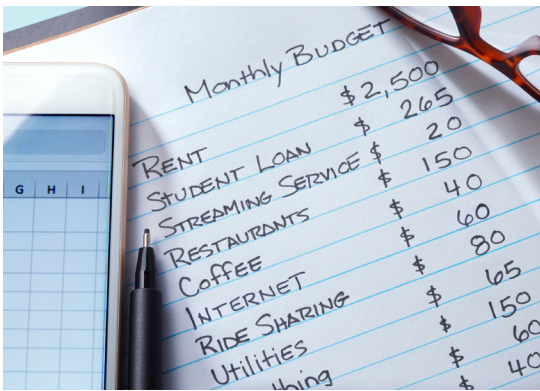 Monthly BUDGET
RENT $2,500
STUDENT LOAN $ 265
STREAMING SERVICE $ 20
RESTAURANTS $ 150
Coffee $ 40
INTERNET $ 60
RIDE SHARING $ 80
Utilities $ 65
thing $ 150
$ 60
$ 40
G H I